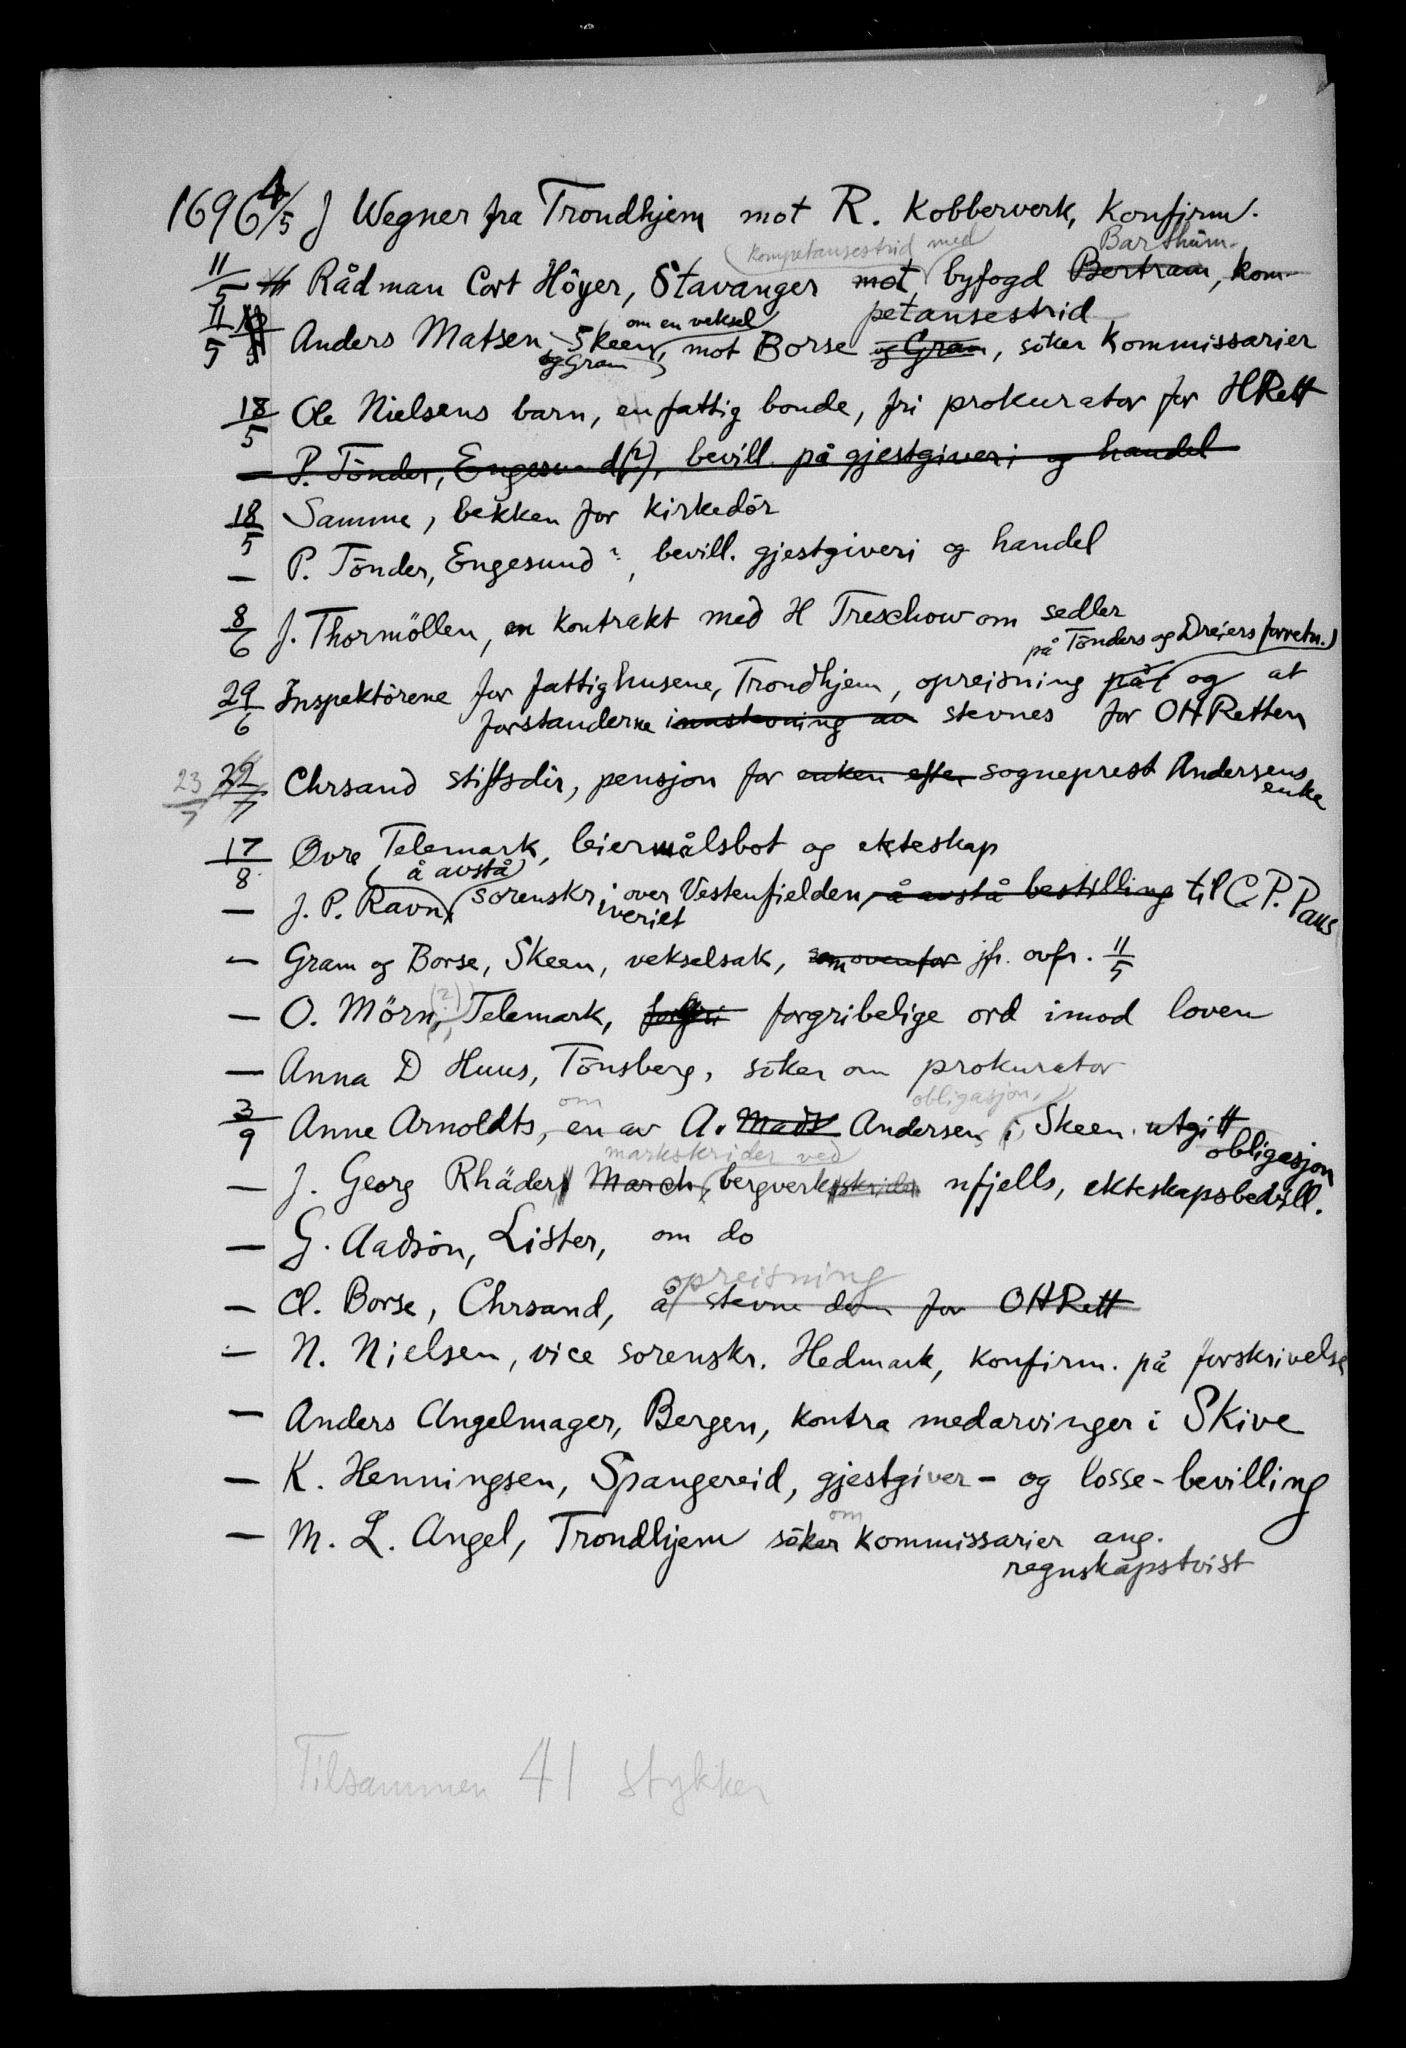 1696 4/5 J Wegner fra Trondhjem mot R. Kobberverk, Konfirm.
kompetansestrid med Barthúm.
11/5 Rådman Cort Höyer, Stavanger mot byfogd Bertram, kom-
petansestrid
om en veksel
11/5 Anders Matsen, Skeen, mot Borse og Gram, söker Kommissarier
og Gram
18/5 Ole Nielsens barn, en fattig bonde, fri prokurator for HRett
— P. Tönder, Engesund (?), bevill. på gjestgiveri og handel
18/5 Samme, bekken for kirkedör
— P. Tönder, Engesund ?, bevill. gjestgiveri og handel
8/6 J. Thormöllen, en kontrakt med H Treschow om sedler
på Tönders og Dreiers forretn.)
29/6 Inspektörene for fattighusene, Trondhjem, opreisning på og at
forstanderne innstevning av stevnes for OHRetten
23/7 29/7 Chrsand stiftsdir, pensjon for enken efter sogneprest Andersens
enke
17/8 Övre Telemark, leiermålsbot og ekteskap
å avstå
— J. P. Ravn, sorenskriveriet over Vestenfjelden, å avstå bestilling til C. P. Paus
— Gram og Borse, Skeen, vekselsak, som ovenfor jfr. ovfr. 11/5
— O. Mörn (?), Telemark, forgri forgribelige ord imod loven
— Anna D Huus, Tönsberg, söker om prokurator
om obligasjon,
3/9 Anne Arnoldts, en av A. Mads Andersen i Skeen utgitt
obligasjon
markskrider ved
— J. Georg Rhäder March, bergverksskrider nfjells, ekteskapsbevill.
— G. Aadsön, Lister, om do
opreisning
— Cl. Borse, Chrsand, å stevne dom for OHRett
— N. Nielsen, vice sorenskr. Hedmark, konfirm. på forskrivelse
— Anders Angelmager, Bergen, kontra medarvinger i Skive
— K. Henningsen, Spangereid, gjestgiver- og losse-bevilling
om
— M. L. Angel, Trondhjem söker kommissarier ang.
regnskapstvist
Tilsammen 41 stykker